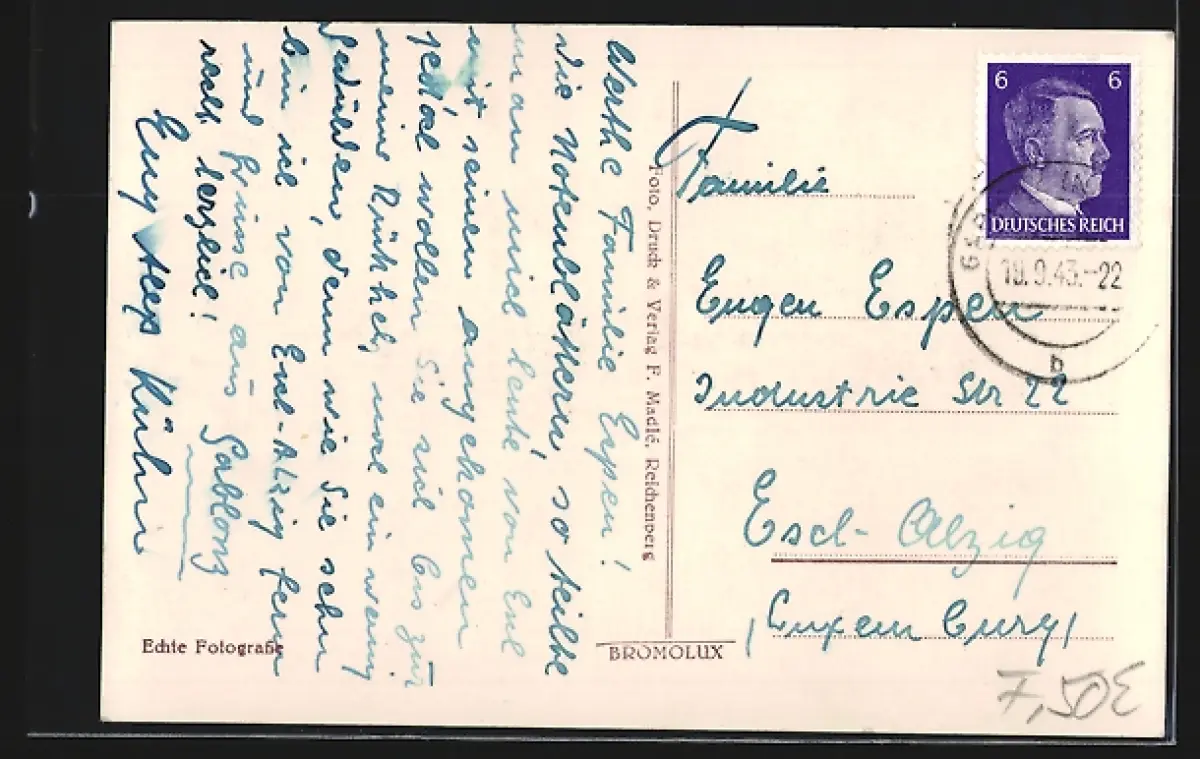 Werthe Familie Espen!
die Notenblättern, so teilte
man mich heute von
mit seinen angekomen
jedoch wollen Sie sich bis zur
meine Rükkh, noch ein wenig
gedulden, denn wie Sie sehn
bin ich von Esch-Alzig fern
und grüße aus Gablonz
recht herzlich!
Kühn
Foto, Druck & Verlag F. Madlé, Reichenberg
Echte Fotografie
BROMOLUX
6 6
DEUTSCHES REICH
10.9.43.-22
b
Familie
Eugen Espen
Industrie Str 22
Esch-Alzig
(Luxemburg)
7,50E